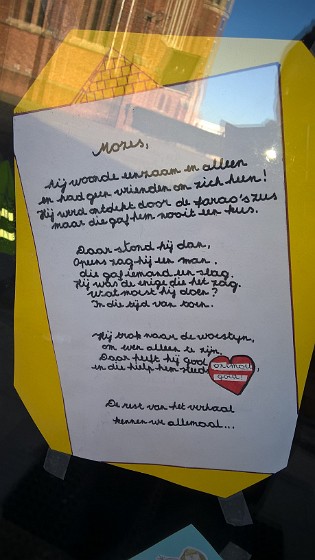 Mozes,
Hij woonde eenzaam en alleen
en had geen vrienden om zich heen!
Hij werd ontdekt door de farao's zus
maar die gaf hem nooit een kus.
Daar stond hij dan,
Opeens zag hij een man.
die gaf iemand een slag.
Hij was de enige die het zag.
Wat moest hij doen?
In die tijd van toen.
Hij trok naar de woestijn,
om wer alleen te zijn,
Daar heeft hij god
en die hielp hem
De rest van het verhaal
kennen we allemaal...